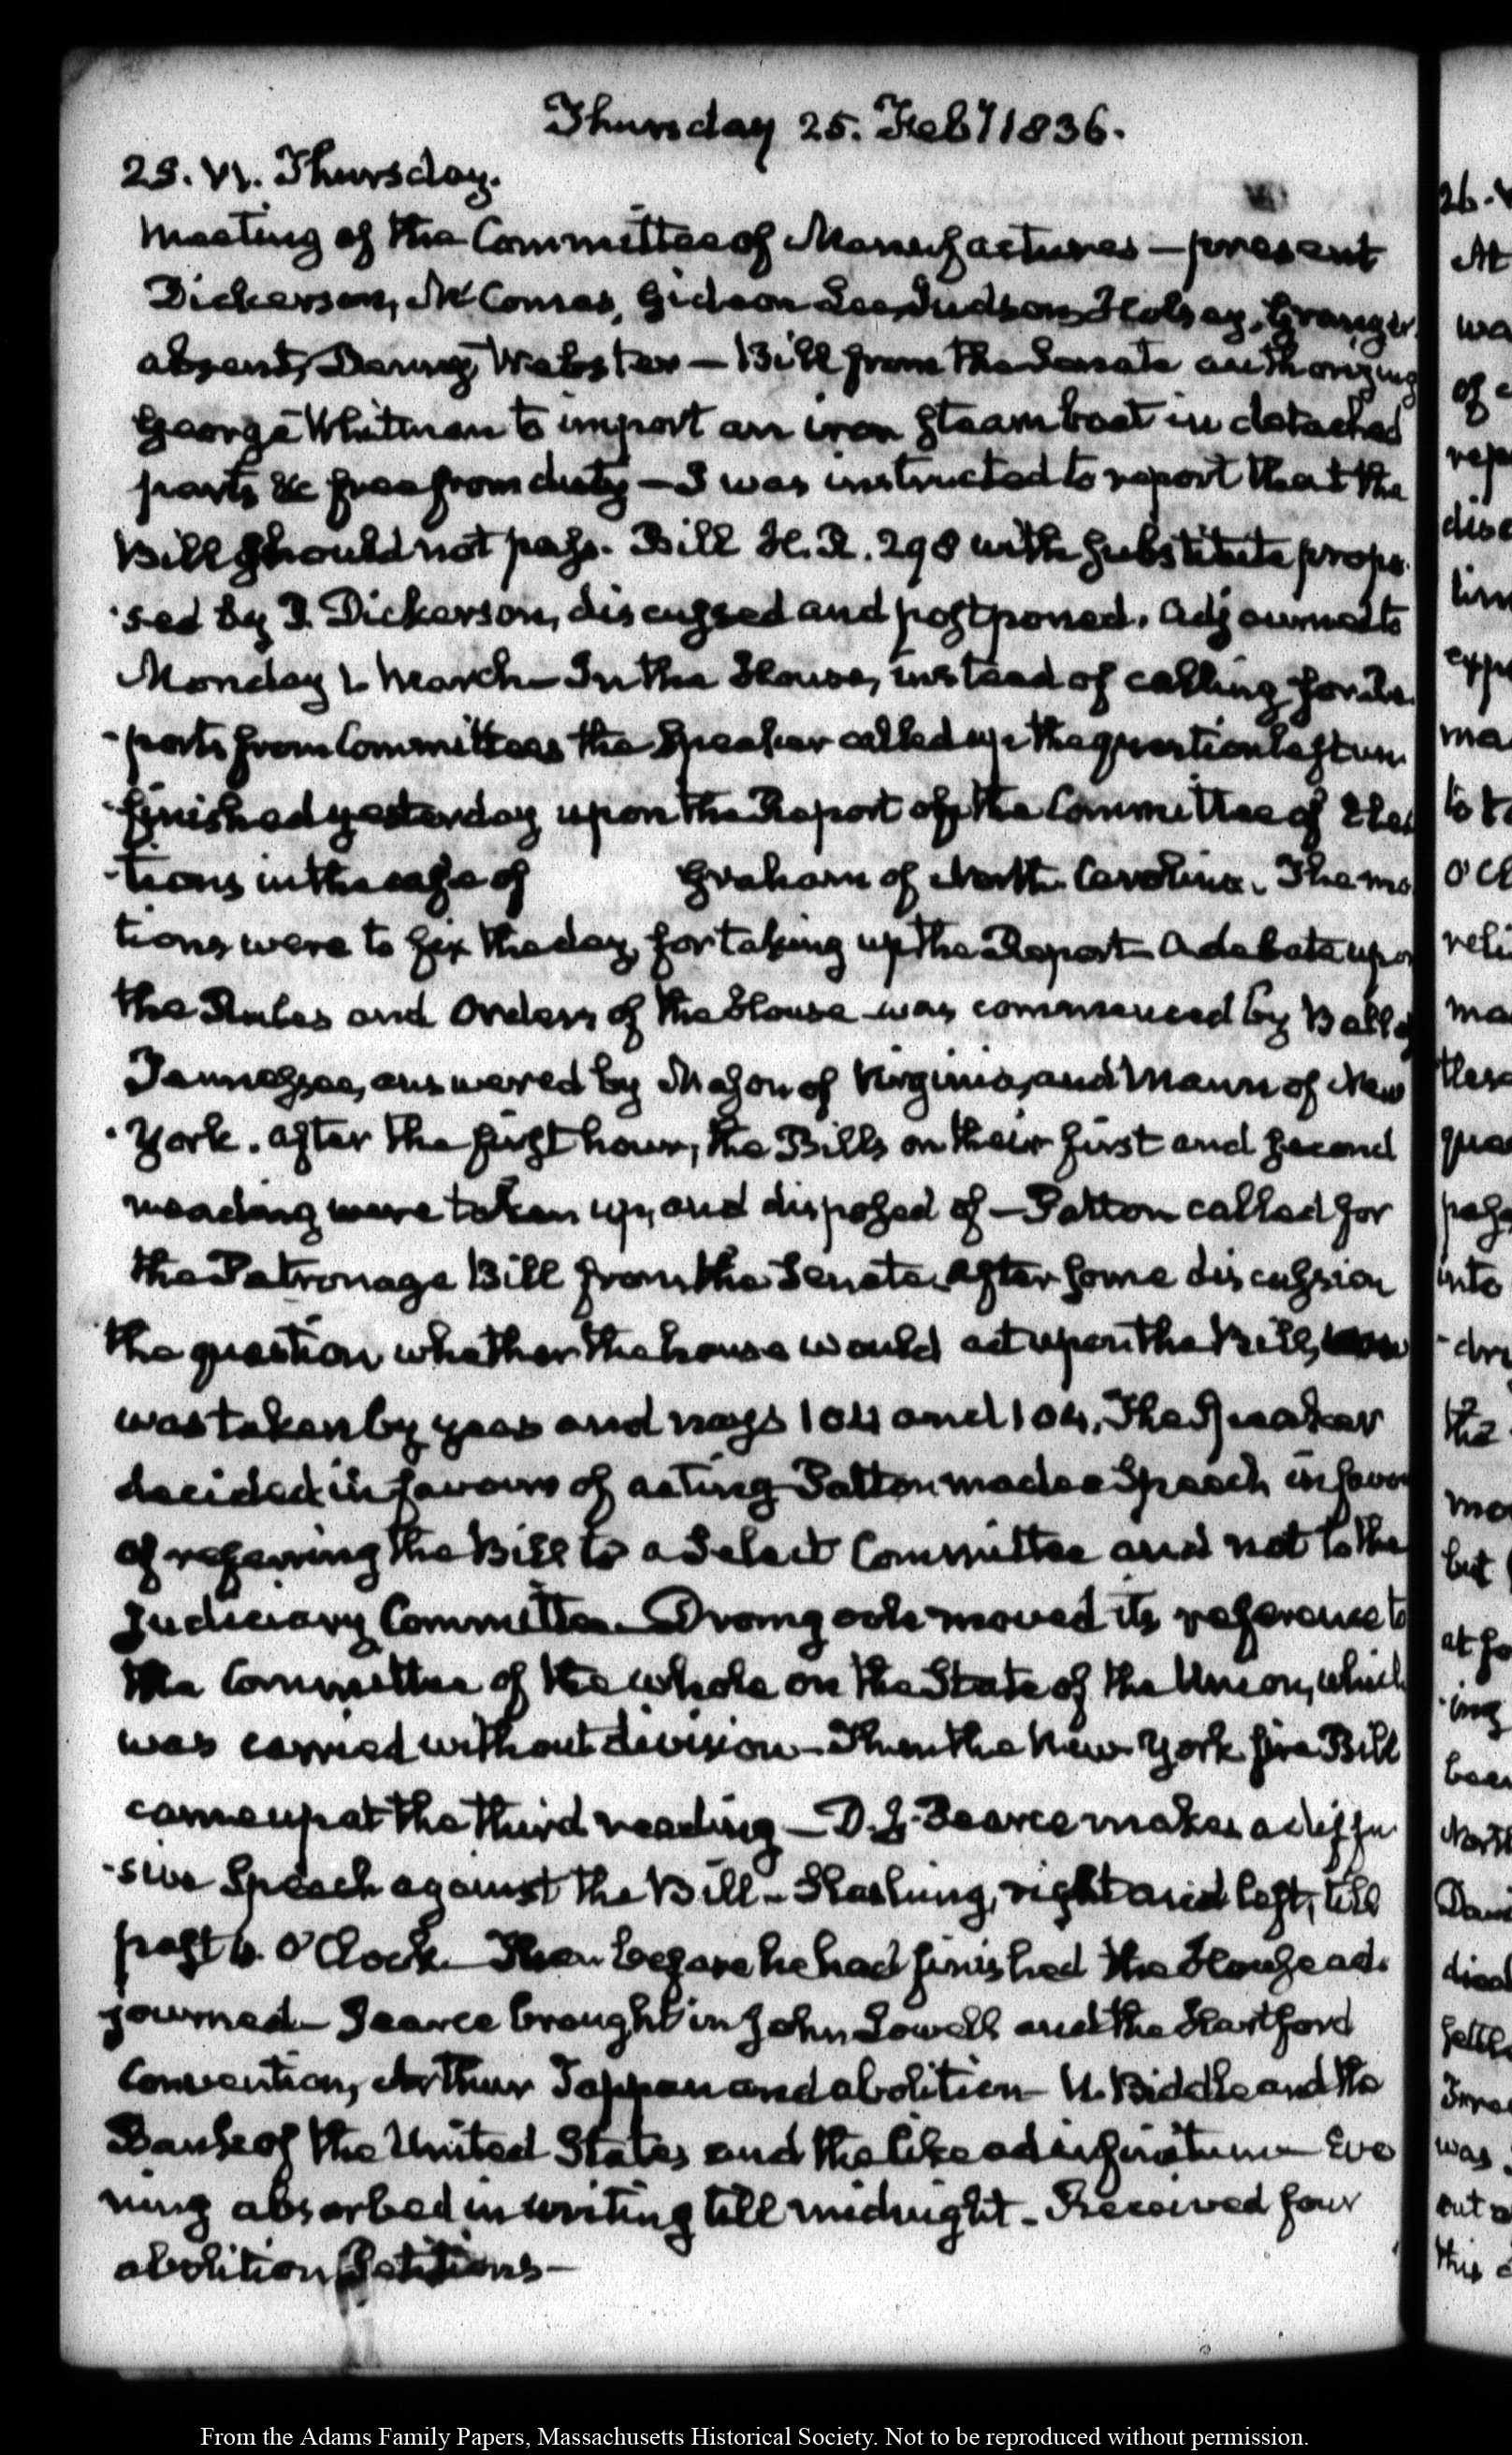 Thursday 25. Feby 1836.
25. VI. Thursday.
Meeting of the Committee of Manufactures — present
Dickerson, McComas, Gideon Lee, Judson, Halsey, Granger.
absent, Denny, Webster — Bill from the Senate authorizing
George Whitman to import an iron steam boat in detached
parts &c free from duty — I was instructed to report that the
Bill should not pass. Bill H.R. 298 with substitute propo
-sed by P. Dickerson, discussed and postponed. Adjourned to
Monday March — In the House, instead of calling for Re
-ports from Committees the Speaker called up the question left un
-finished yesterday upon the Report of the Committee of Elec
-tions in the case of Graham of North Carolina. The mo
tions were to fix the day, for taking up the Report — A debate upon
the Rules and Orders of the House was commenced by Bell of
Tennessee, answered by Mason of Virginia, and Mann of New
-York. After the first hour, the Bills on their first and second
reading were taken up, and disposed of — Patton called for
the Patronage Bill from the Senate. After some discussion
the question whether the house would act upon the Bill,
was taken by yeas and nays 104 and 104. The Speaker
decided in favour of acting — Patton made a Speech in favour
of referring the Bill to a Select Committee and not to the
Judiciary Committee — Dromgoole moved its reference to
the Committee of the whole on the State of the Union, which
was carried without division — Then the New-York fire Bill
came up at the third reading — D. J. Pearce makes a diffu
-sive Speech against the Bill — Slashing, right and left, till
past O'Clock — Then before he had finished the House ad
journed — Pearce brought in John Lowell and the Hartford
Convention, Arthur Tappan and abolition — N. Biddle and the
Bank of the United States and the like ad infinitum — Eve
ning absorbed in writing till midnight — Received four
abolition Petitions —
26.
At
wa
of
rep
disc
lin
expe
ma
to t
O'Cl
reli
ma
these
que
pass
into
-dr
the
mo
but
at
-ing
been
North
Davi
died
settl
was
out
this
From the Adams Family Papers, Massachusetts Historical Society. Not to be reproduced without permission.